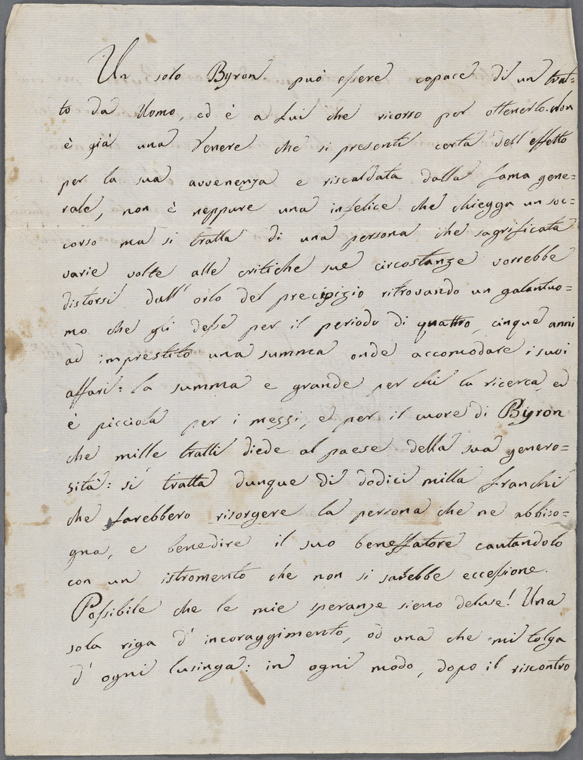 Un solo Byron può essere capace di un trat=
to da Uomo, ed è a Lui che ricorro per ottenerlo. Non
è già una Venere che si presenti certa dell'effetto
per la sua avvenenza e riscaldata dalla fama gene=
rale, non è neppure una infelice che chiegga un soc=
corso ma si tratta di una persona che sagrificata
varie volte alle critiche sue circostanze vorrebbe
distorsi dall' orlo del precipizio ritrovando un galantuo=
mo che gli desse per il periodo di quattro, cinque anni
ad imprestito una summa onde accomodare i suoi
affari: la summa è grande per chi la ricerca, ed
è picciola per i mezzi, e per il cuore di Byron
che mille tratti diede al paese della sua genero=
sità: si tratta dunque di dodici milla franchi
che farebbero risorgere la persona che ne abbiso=
gna, e benedire il suo benefattore cautandolo
con un istromento che non si sarebbe eccessione.
Possibile che le mie speranze sieno deluse! Una
sola riga d' incoraggimento, od una che mi tolga
d' ogni lusinga: in ogni modo, dopo il riscontro